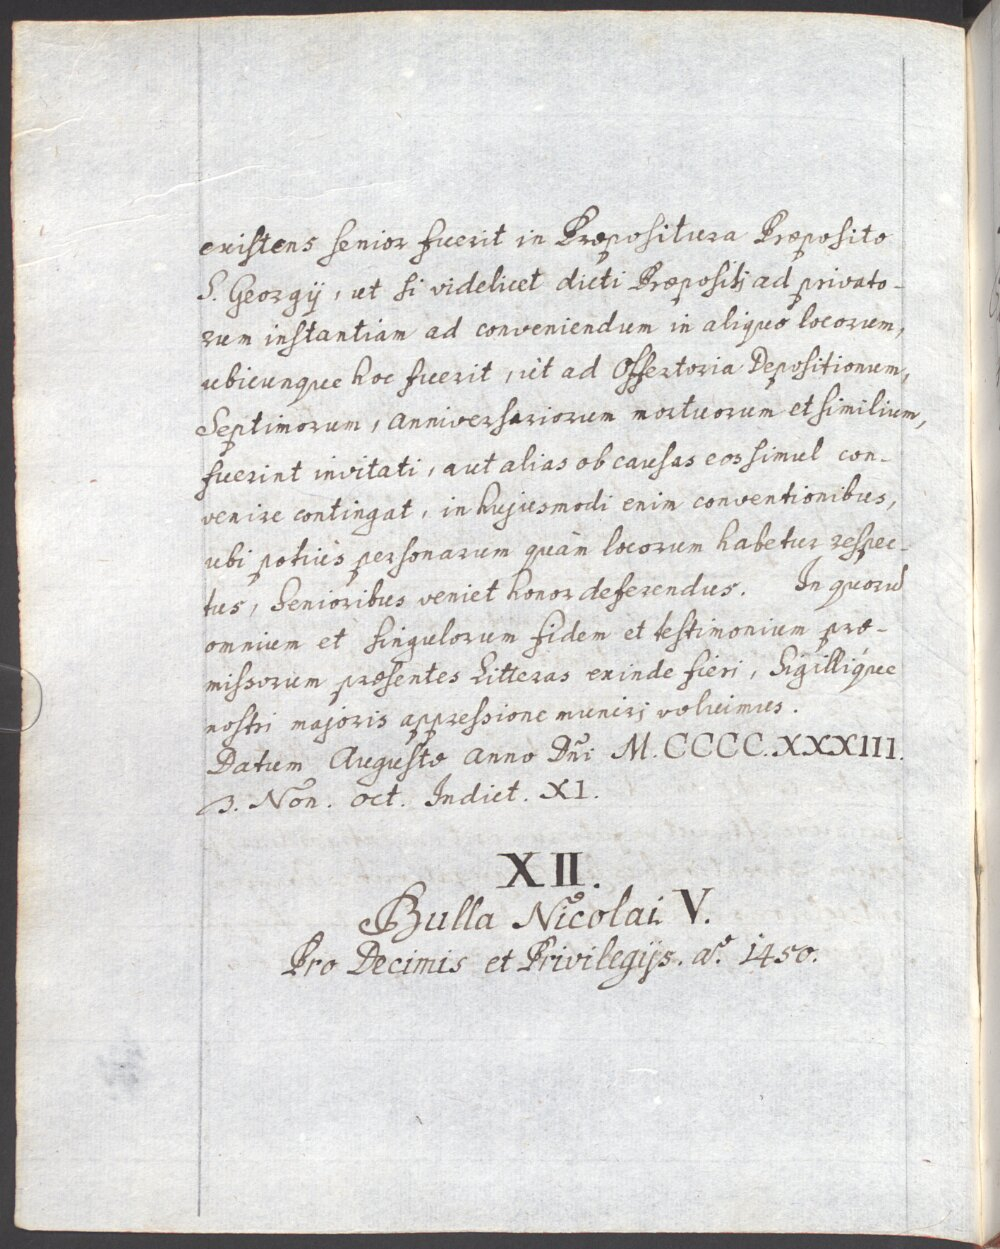 existens senior fuerit in Præpositura Præposito
S. Georgÿ, ut si videlicet dicti Præpositj ad privato-
rum instantiam ad conveniendum in aliquo locorum,
ubicunque hoc fuerit, ut ad Offertoria Depositionum,
Septimorum, Anniversariorum mortuorum et similium,
fuerint invitati, aut alias ob causas eos simul con-
venire contingat, in hujusmodi enim conventionibus,
ubi potiùs personarum quàm locorum habetur respec-
tus, senioribus veniet honor deferendus. In quorū
omnium et singulorum fidem et testimonium præ-
missorum præsentes Litteras exinde fieri, Sigillíque
nostri majoris appressione munirj voluimus.
Datum Augustæ Anno Dñi M.CCCC.XXXIII.
3. Non. Oct. Indict. XI.
XII.
Bulla Nicolai V.
Pro Decimis et Privilegÿs. aº. 1450.